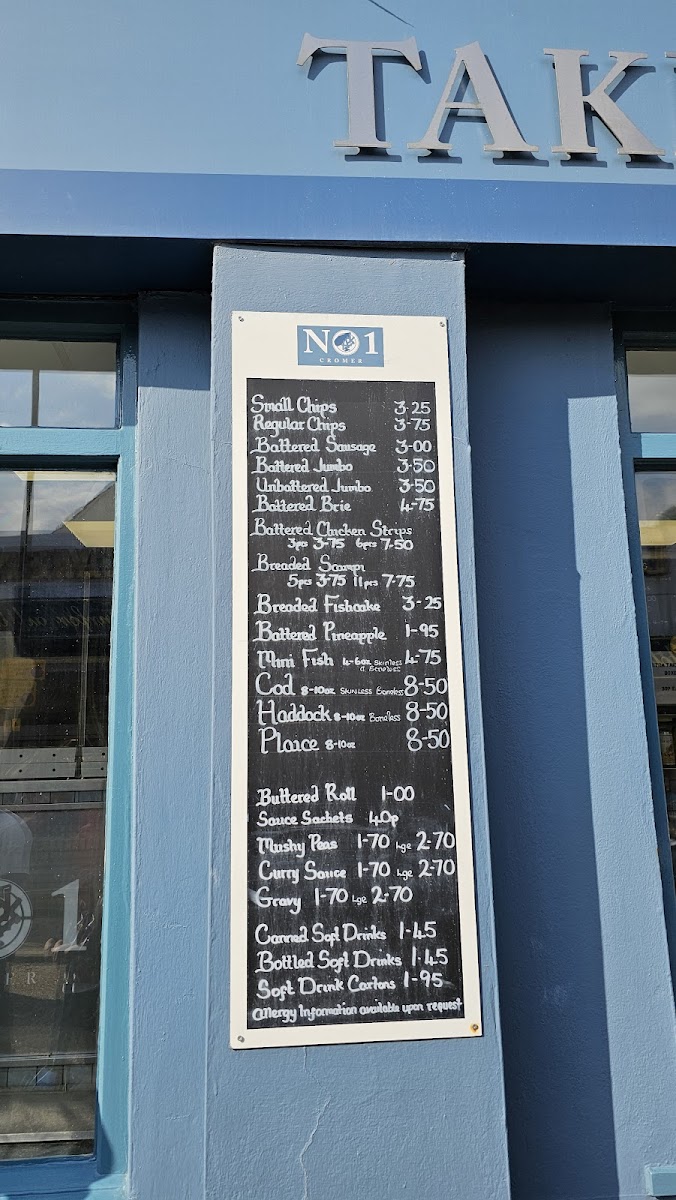 TAK
NO1
CROMER
Small Chips 3-25
Regular Chips 3-75
Battered Sausage 3-00
Battered Jumbo 3-50
Unbattered Jumbo 3-50
Battered Brie 4-75
Battered Chicken Strips
3pcs 3-75 6pcs 7-50
Breaded Scampi
5pcs 3-75 11pcs 7-75
Breaded Fishcake 3-25
Battered Pineapple 1-95
Mini Fish 4-6oz Skinless & Boneless 4-75
Cod 8-10oz Skinless Boneless 8-50
Haddock 8-10oz Boneless 8-50
Plaice 8-10oz 8-50
Buttered Roll 1-00
Sauce Sachets 40p
Mushy Peas 1-70 Lge 2-70
Curry Sauce 1-70 Lge 2-70
Gravy 1-70 Lge 2-70
Canned Soft Drinks 1-45
Bottled Soft Drinks 1-45
Soft Drink Cartons 1-95
Allergy Information available upon request
1